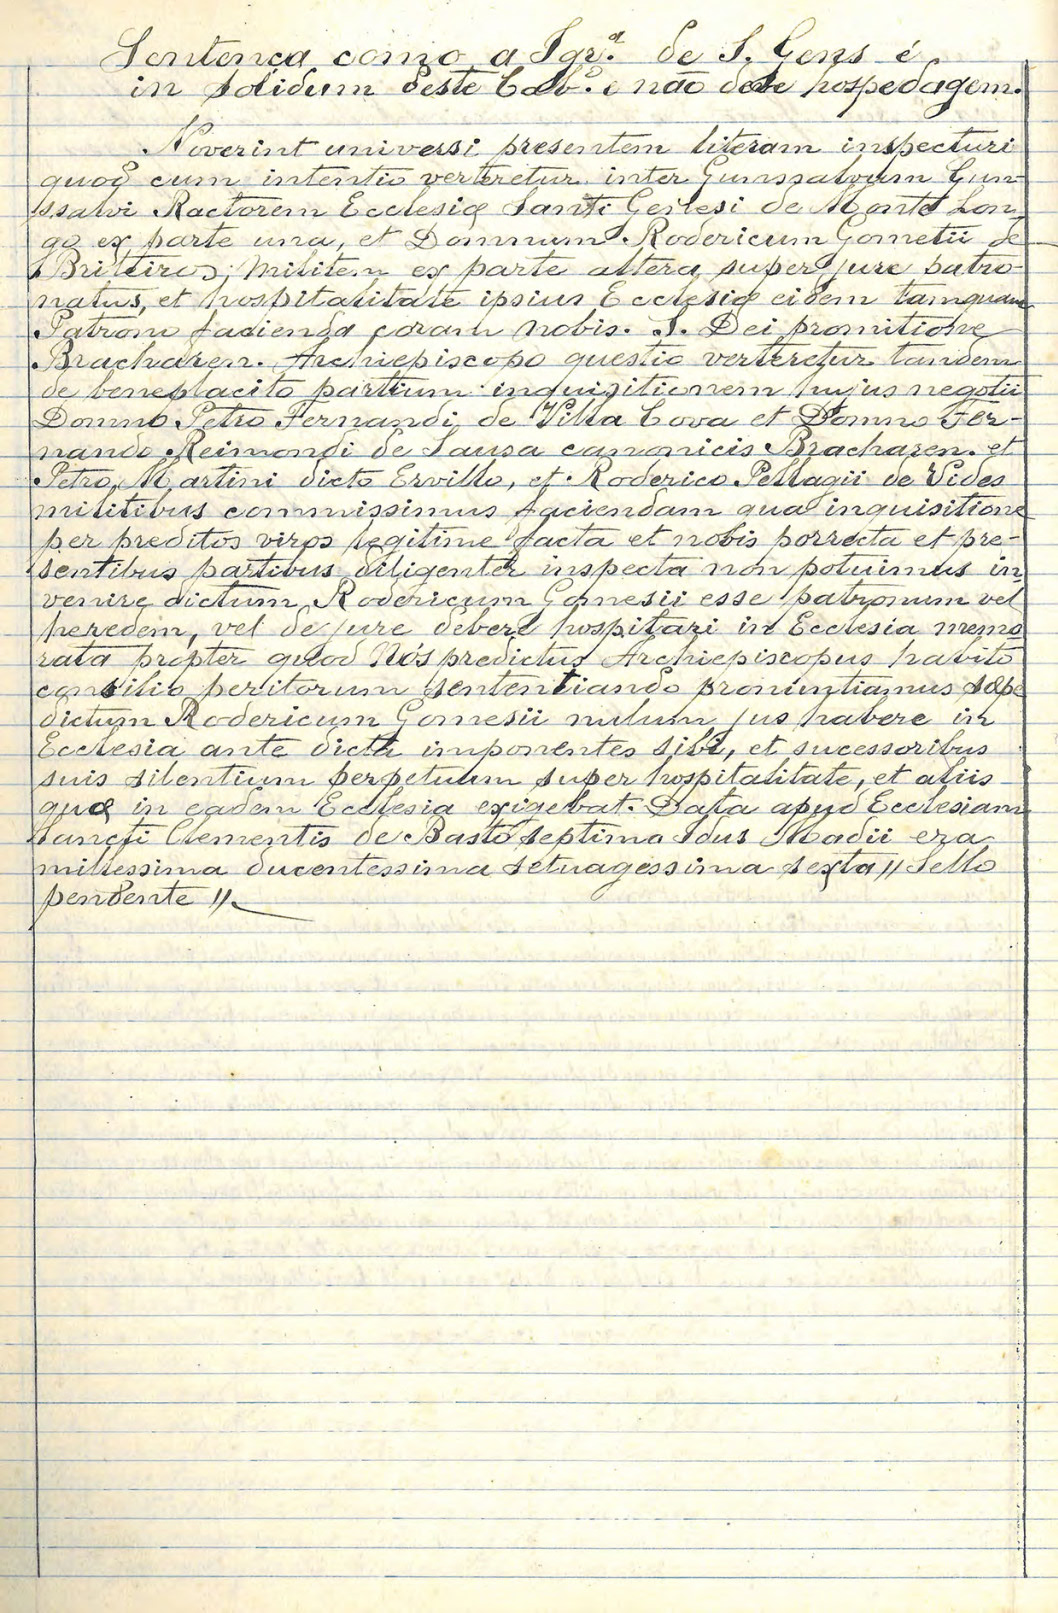 Sentença como a Igrª. de S. Gens é
in solidum deste Cabº. e não deve hospedagem.
Noverint universi presentem literam inspecturi
quod cum intentio verteretur inter Gunssalvum Gun-
ssalvi Ractorem Ecclesiæ Santi Genesi de Monte Lon-
go ex parte una, et Domnum Rodericum Gometii de
Britteiros, militem ex parte altera super jure patro-
natus, et hospitalitate ipsius Ecclesiæ eidem tamquam
Patrono facienda coram nobis. S. Dei promitione
Bracharen. Archiepiscopo questio verteretur tandem
de beneplacito partium inquisitionem hujus negotii
Domno Petro Fernandi de Villa Cova et Domno Fer-
nando Reimondi de Sausa canonicis Bracharen. et
Petro Martini dicto Ervilho, et Roderico Pellagii de Vides
militibus commissimus faciendam qua inquisitione
per preditos viros legitime facta et nobis porrecta et pre-
sentibus partibus diligenter inspecta non potuimus in
venire dictum Rodericum Gomesii esse patronum vel
heredem, vel de jure debere hospitari in Ecclesia memo
rata propter quod Nós predictus Archiepiscopus habito
consilio peritorum sententiando pronuntiamus sæpe
dictum Rodericum Gomesii nulum jus habere in
Ecclesia ante dicta imponentes sibi, et sucessoribus
suis silentium perpetuum super hospitalitate, et aliis
quæ in eadem Ecclesia exigebat. Data apud Ecclesiam
Sancti Clementis de Basto septimo Idus Madii era
millessima ducentessima setuagessima sexta // Sello
pendente //.